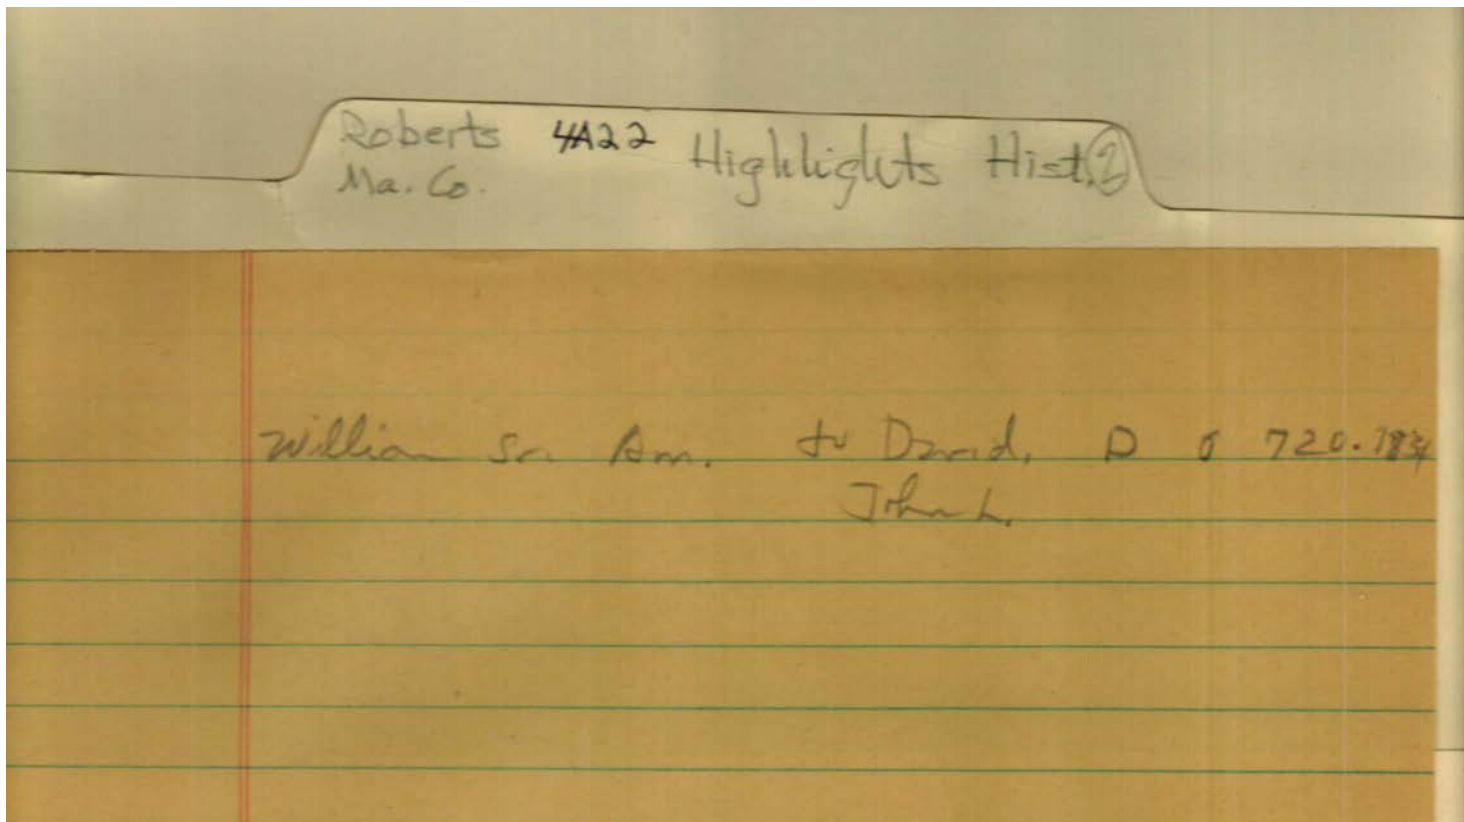 Roberts 4A22 Highlights Hist. 2
Ma. Co.
William Sr. Am. to David. D 720.
John L.